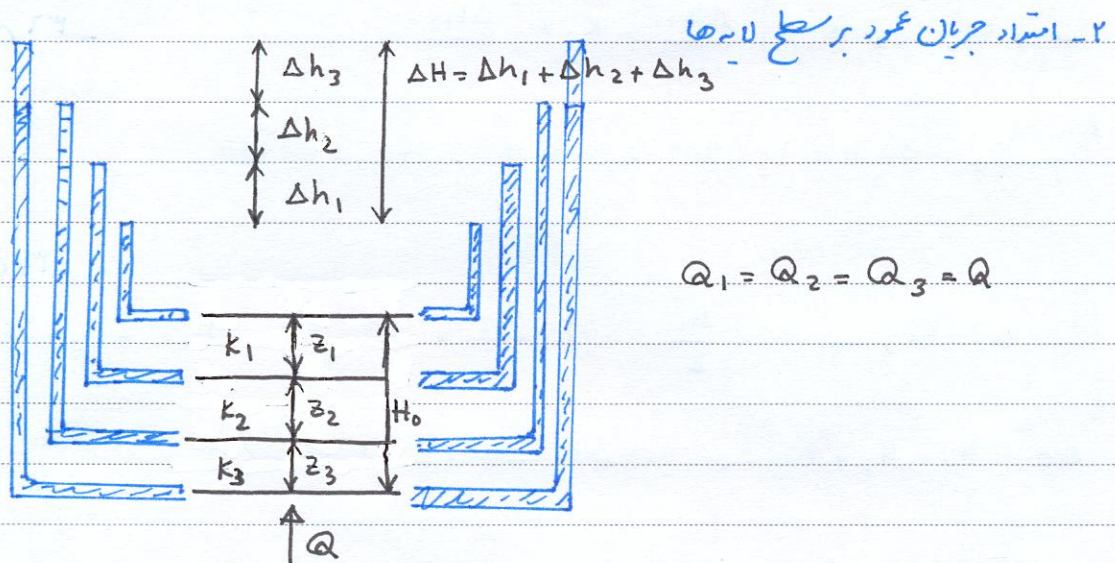 ۲- امتداد جریان عمود بر سطح لایه ها
Δh₃
ΔH = Δh₁ + Δh₂ + Δh₃
Δh₂
Δh₁
Q₁ = Q₂ = Q₃ = Q
K₁ z₁
K₂ z₂ H₀
K₃ z₃
Q